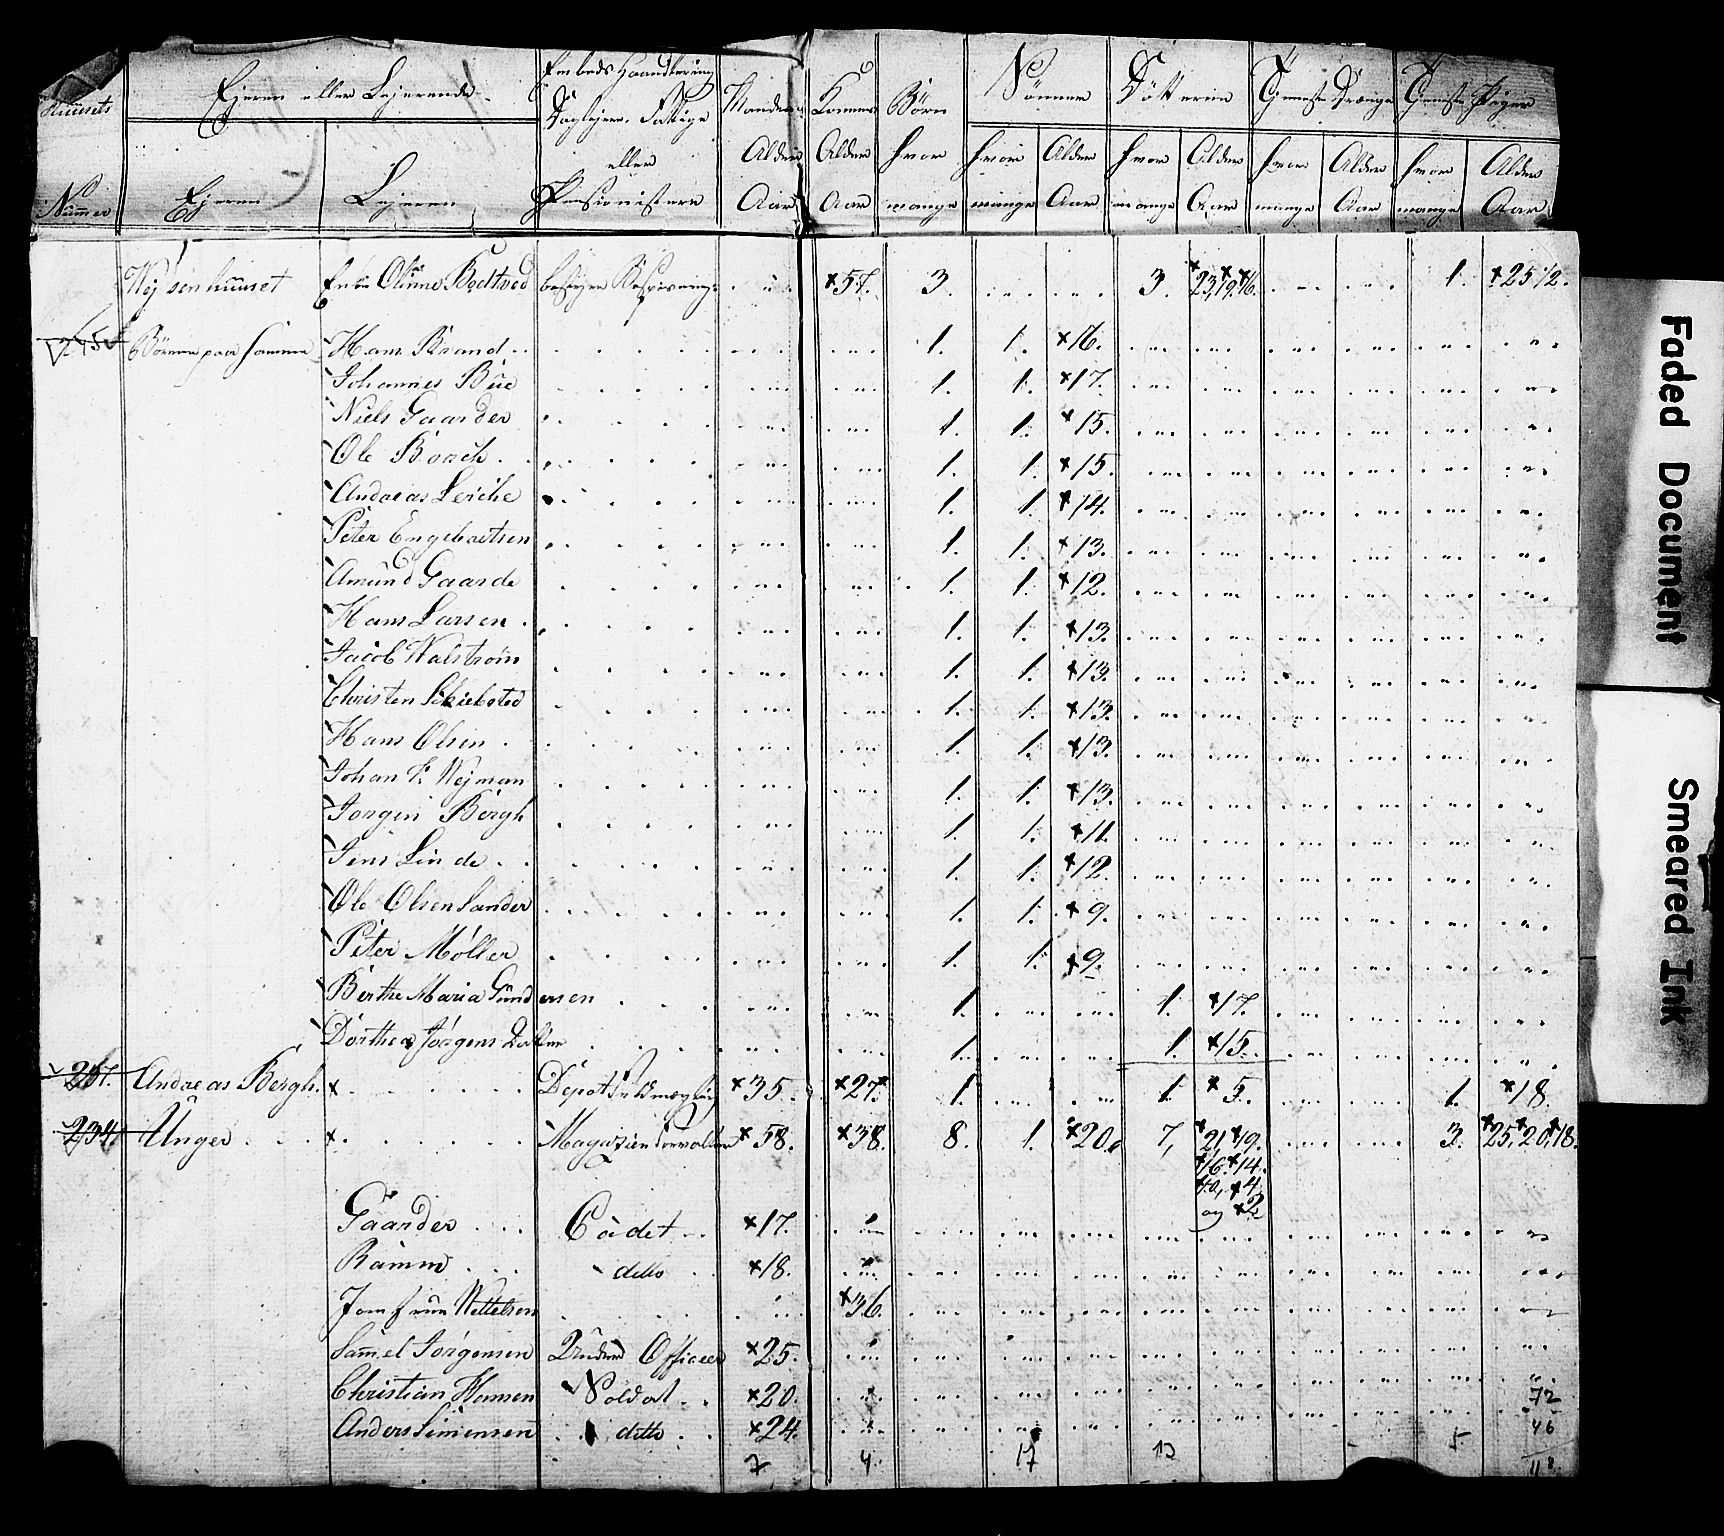 Huusets Nummer | Ejeren eller Lejerende | Embeds Haandtering Daglejere, Fattige eller Pensionistere | Manden | Konens | Börn | Sönner | Döttrene | Tjeneste Drænge | Tjeneste Piger
Ejeren | Lejeren | Alder Aar | Alder Aar | hvor mange | hvor mange | Alder Aar | hvor mange | Alder Aar | hvor mange | Alder Aar | hvor mange | Alder Aar
Wejsenhuuset | Enke | 57. | 3. | 3. | 23, 19, 16. | 1. | 25 1/2.
Börnene paa samme | Hans Brand | 1. | 1. | 16.
Johannes Bue | 1. | 1. | 17.
Niels Gaarder | 1. | 1. | 15.
Ole Borsch | 1. | 1. | 15.
Andreas Leiche | 1. | 1. | 14.
Peter Engebretsen | 1. | 1. | 13.
Amund Gaarde | 1. | 1. | 12.
Hans Larsen | 1. | 1. | 13.
Jacob Walström | 1. | 1. | 13.
Christen | 1. | 1. | 13.
Hans Olsen | 1. | 1. | 13.
Johan Wejman | 1. | 1. | 13.
Jörgen Bergh | 1. | 1. | 11.
Jens Linde | 1. | 1. | 12.
Ole Olsen Sander | 1. | 1. | 9.
Peter Möller | 1. | 1. | 9.
Berthe Maria Gundersen | 1. | 1. | 17.
Dorthea Jörgens Datter | 1. | 1. | 15.
Andreas Bergh. | 35. | 27. | 1. | 1. | 5. | 1. | 18.
234 | Unger | Magazien forvalter | 58. | 38. | 8. | 1. | 20. | 7, | 21, 19. | 3. | 25, 20, 18.
16. 14.
10, 4,
og 2
Gaarder | Cadet | 17.
Ramm | ditto | 18.
Jomfrue | 36.
Samel Jörgensen | Under Officeer | 25.
Christian Hansen | Soldat | 20. | 72
Anders Simensen | ditto | 24. | 46
7 | 4 | 17 | 13 | 5 | 118
Faded Document
Smeared Ink